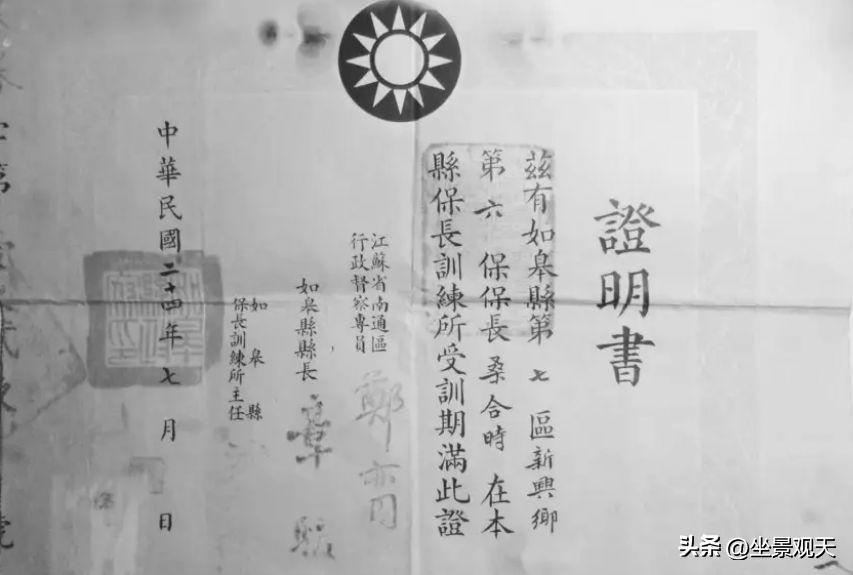 證明書
茲有如皋縣第七區新興鄉
第六保保長桑合時在本
縣保長訓練所受訓期滿此證
江蘇省南通區
行政督察專員
鄭亦同
如皋縣縣長
如皋縣
保長訓練所主任
中華民國二十四年七月 日
头条 @坐景观天